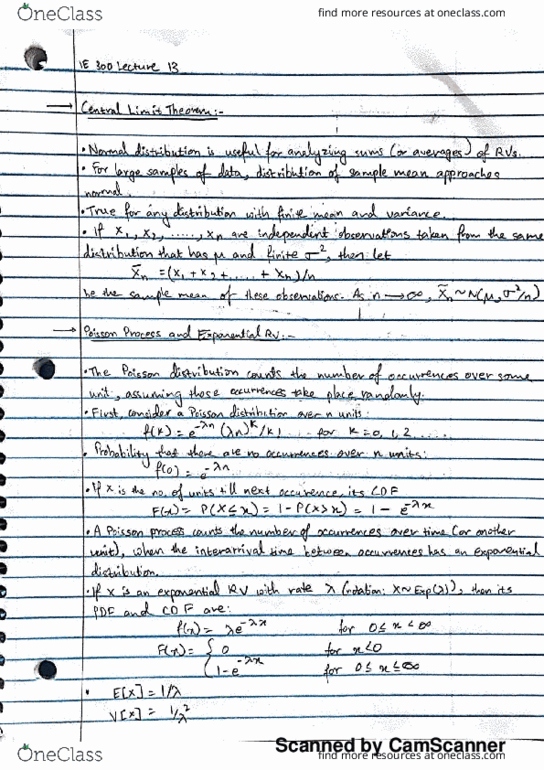 OneClass
find more resources at oneclass.com
IE 300 Lecture 13
→ Central Limit Theorem:-
• Normal distribution is useful for analyzing sums (or averages) of RVs.
• For large samples of data, distribution of sample mean approaches
normal.
• True for any distribution with finite mean and variance.
• If X₁, X₂, ....., Xn are independent observations taken from the same
distribution that has μ and finite σ², then let
X̄n = (X₁ + X₂ + .... + Xn)/n
be the sample mean of these observations. As n → ∞, X̄n ~ N(μ, σ²/n)
→ Poisson Process and Exponential RV:-
• The Poisson distribution counts the number of occurrences over some
unit, assuming those occurrences take place randomly.
• First, consider a Poisson distribution over n units:
f(k) = e^-λn (λn)^k/k! for k = 0, 1, 2 .....
• Probability that there are no occurrences over n units:
f(0) = e^-λn
• If X is the no. of units till next occurence, its CDF
F(x) = P(X ≤ x) = 1 - P(X > x) = 1 - e^-λx
• A Poisson process counts the number of occurrences over time (or another
unit), when the interarrival time between occurrences has an exponential
distribution.
• If X is an exponential RV with rate λ (notation: X~Exp(λ)), then its
PDF and CDF are:
f(x) = λe^-λx for 0 ≤ x < ∞
F(x) = { 0 for x < 0
1 - e^-λx for 0 ≤ x ≤ ∞
• E[X] = 1/λ
V[X] = 1/λ²
Scanned by CamScanner
OneClass
find more resources at oneclass.com